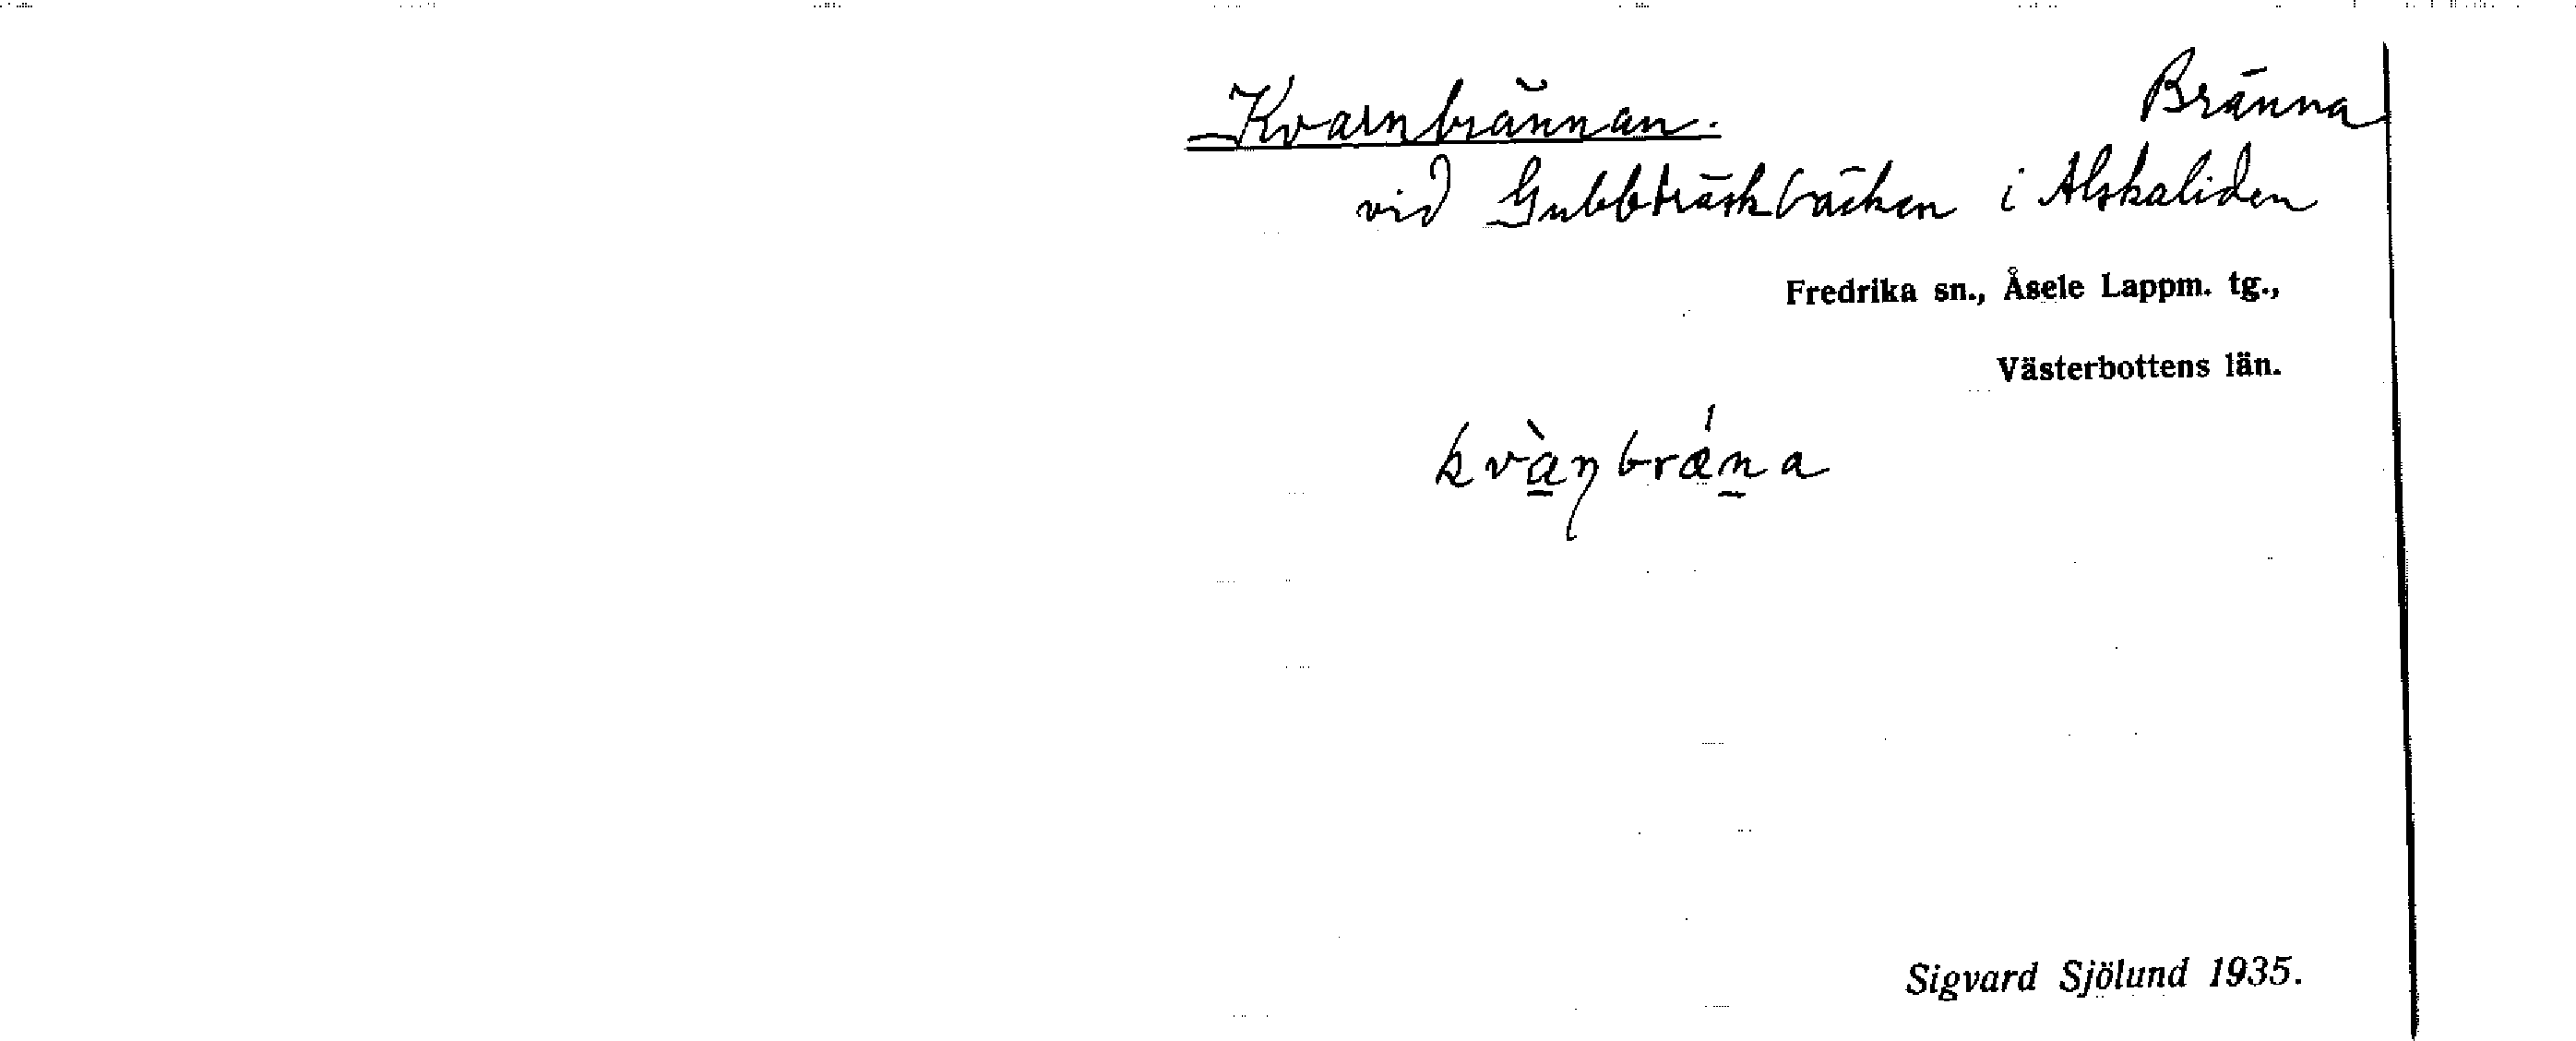 Kvarnbrännan. Bränna
vid Gubbträskbäcken i Alskaliden
Fredrika sn., Åsele Lappm. tg.,
Västerbottens län.
kvà̲ŋbrǽn̲a
Sigvard Sjölund 1935.